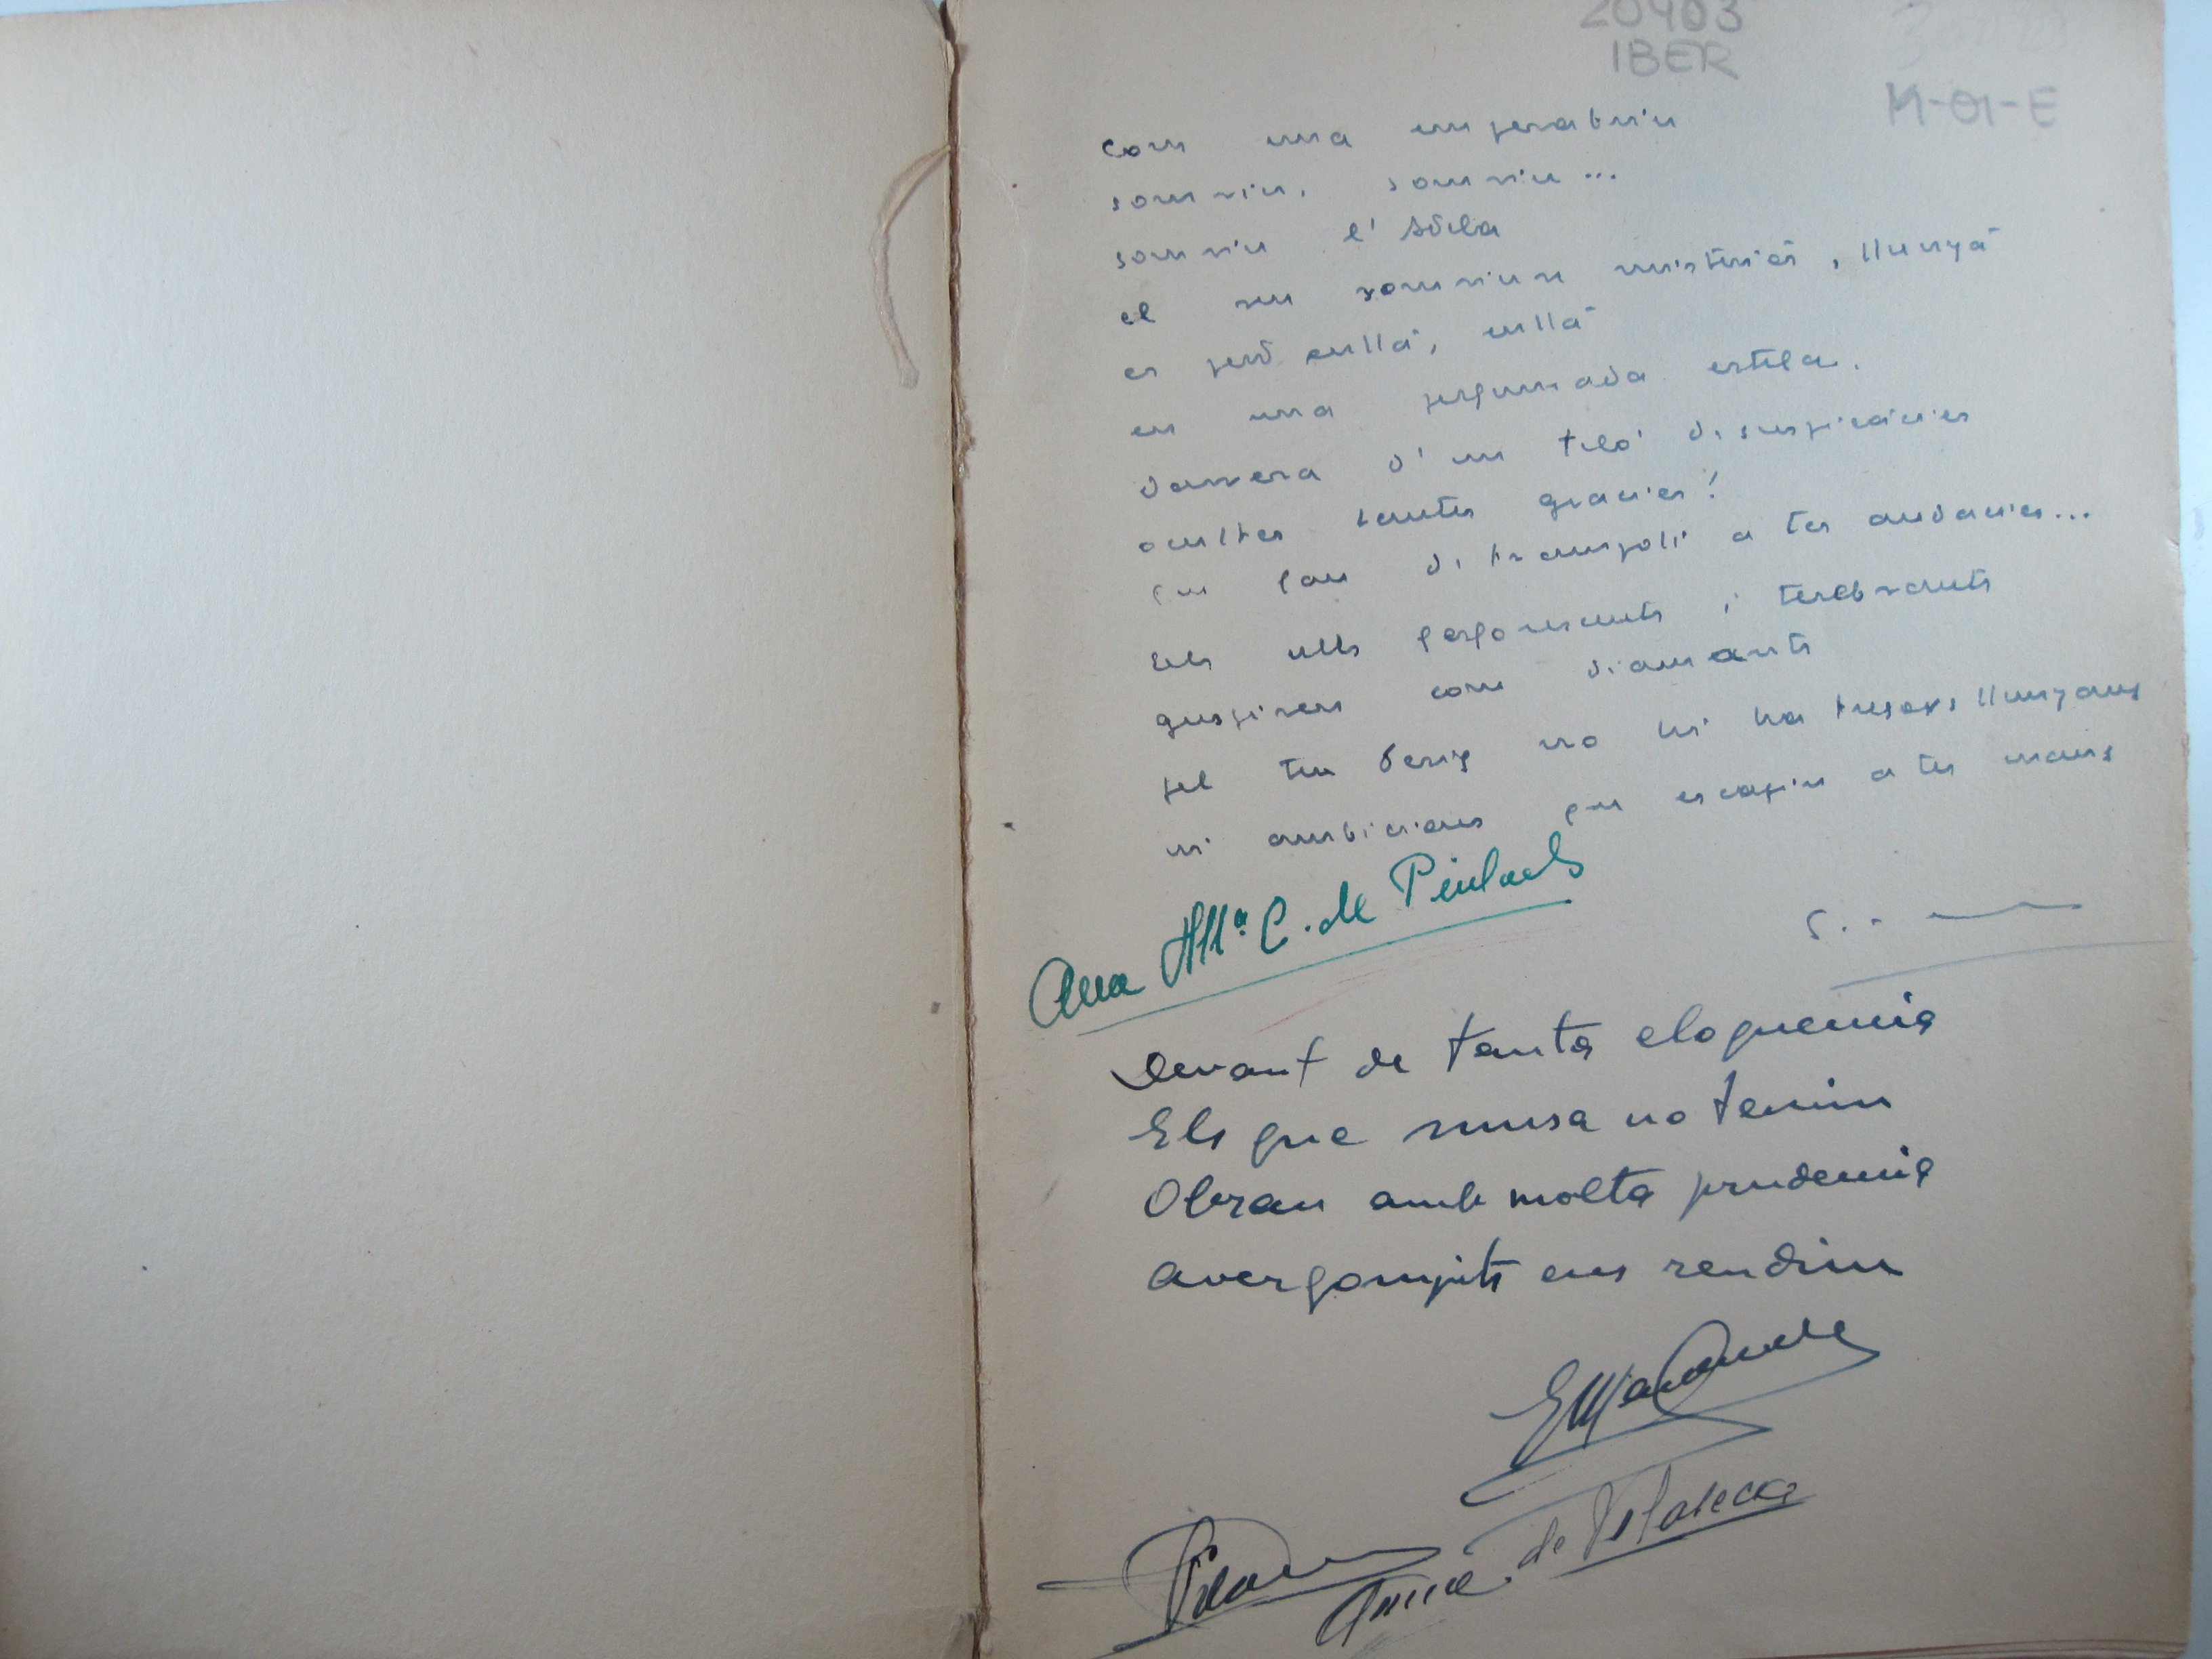 20403
IBER
M-01-E
com una emperatriu
somriu, somriu...
somriu l'Adela
el seu somriure misteriós, llunyà
es perd enllà, enllà
en una perfumada estela.
darrera d'un teló de suspicàcies
ocultes tantes gracies!
que fan de trampolí a tes audacies...
Els ulls perforants i terebrants
guspiren com diamants
pel teu desig no hi ha tresors llunyans
ni ambicions que escapin a tes mans
Ana Mª C. de
Devant de tanta eloquencia
Els que musa no tenim
Obran amb molta prudencia
avergonyits ens rendim
de